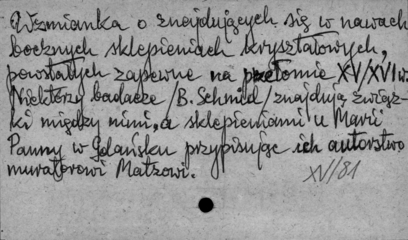 Wzmianka o znajdujących się w nawach
bocznych sklepieniach kryształowych,
powstałych zapewne na przełomie XV/XVI w.
Niektórzy badacze /B. Schmid/ znajdują związ-
ki między nimi, a sklepieniami u Marii
Panny w Gdańsku przypisując ich autorstwo
muratorowi Matzowi.
XV/81